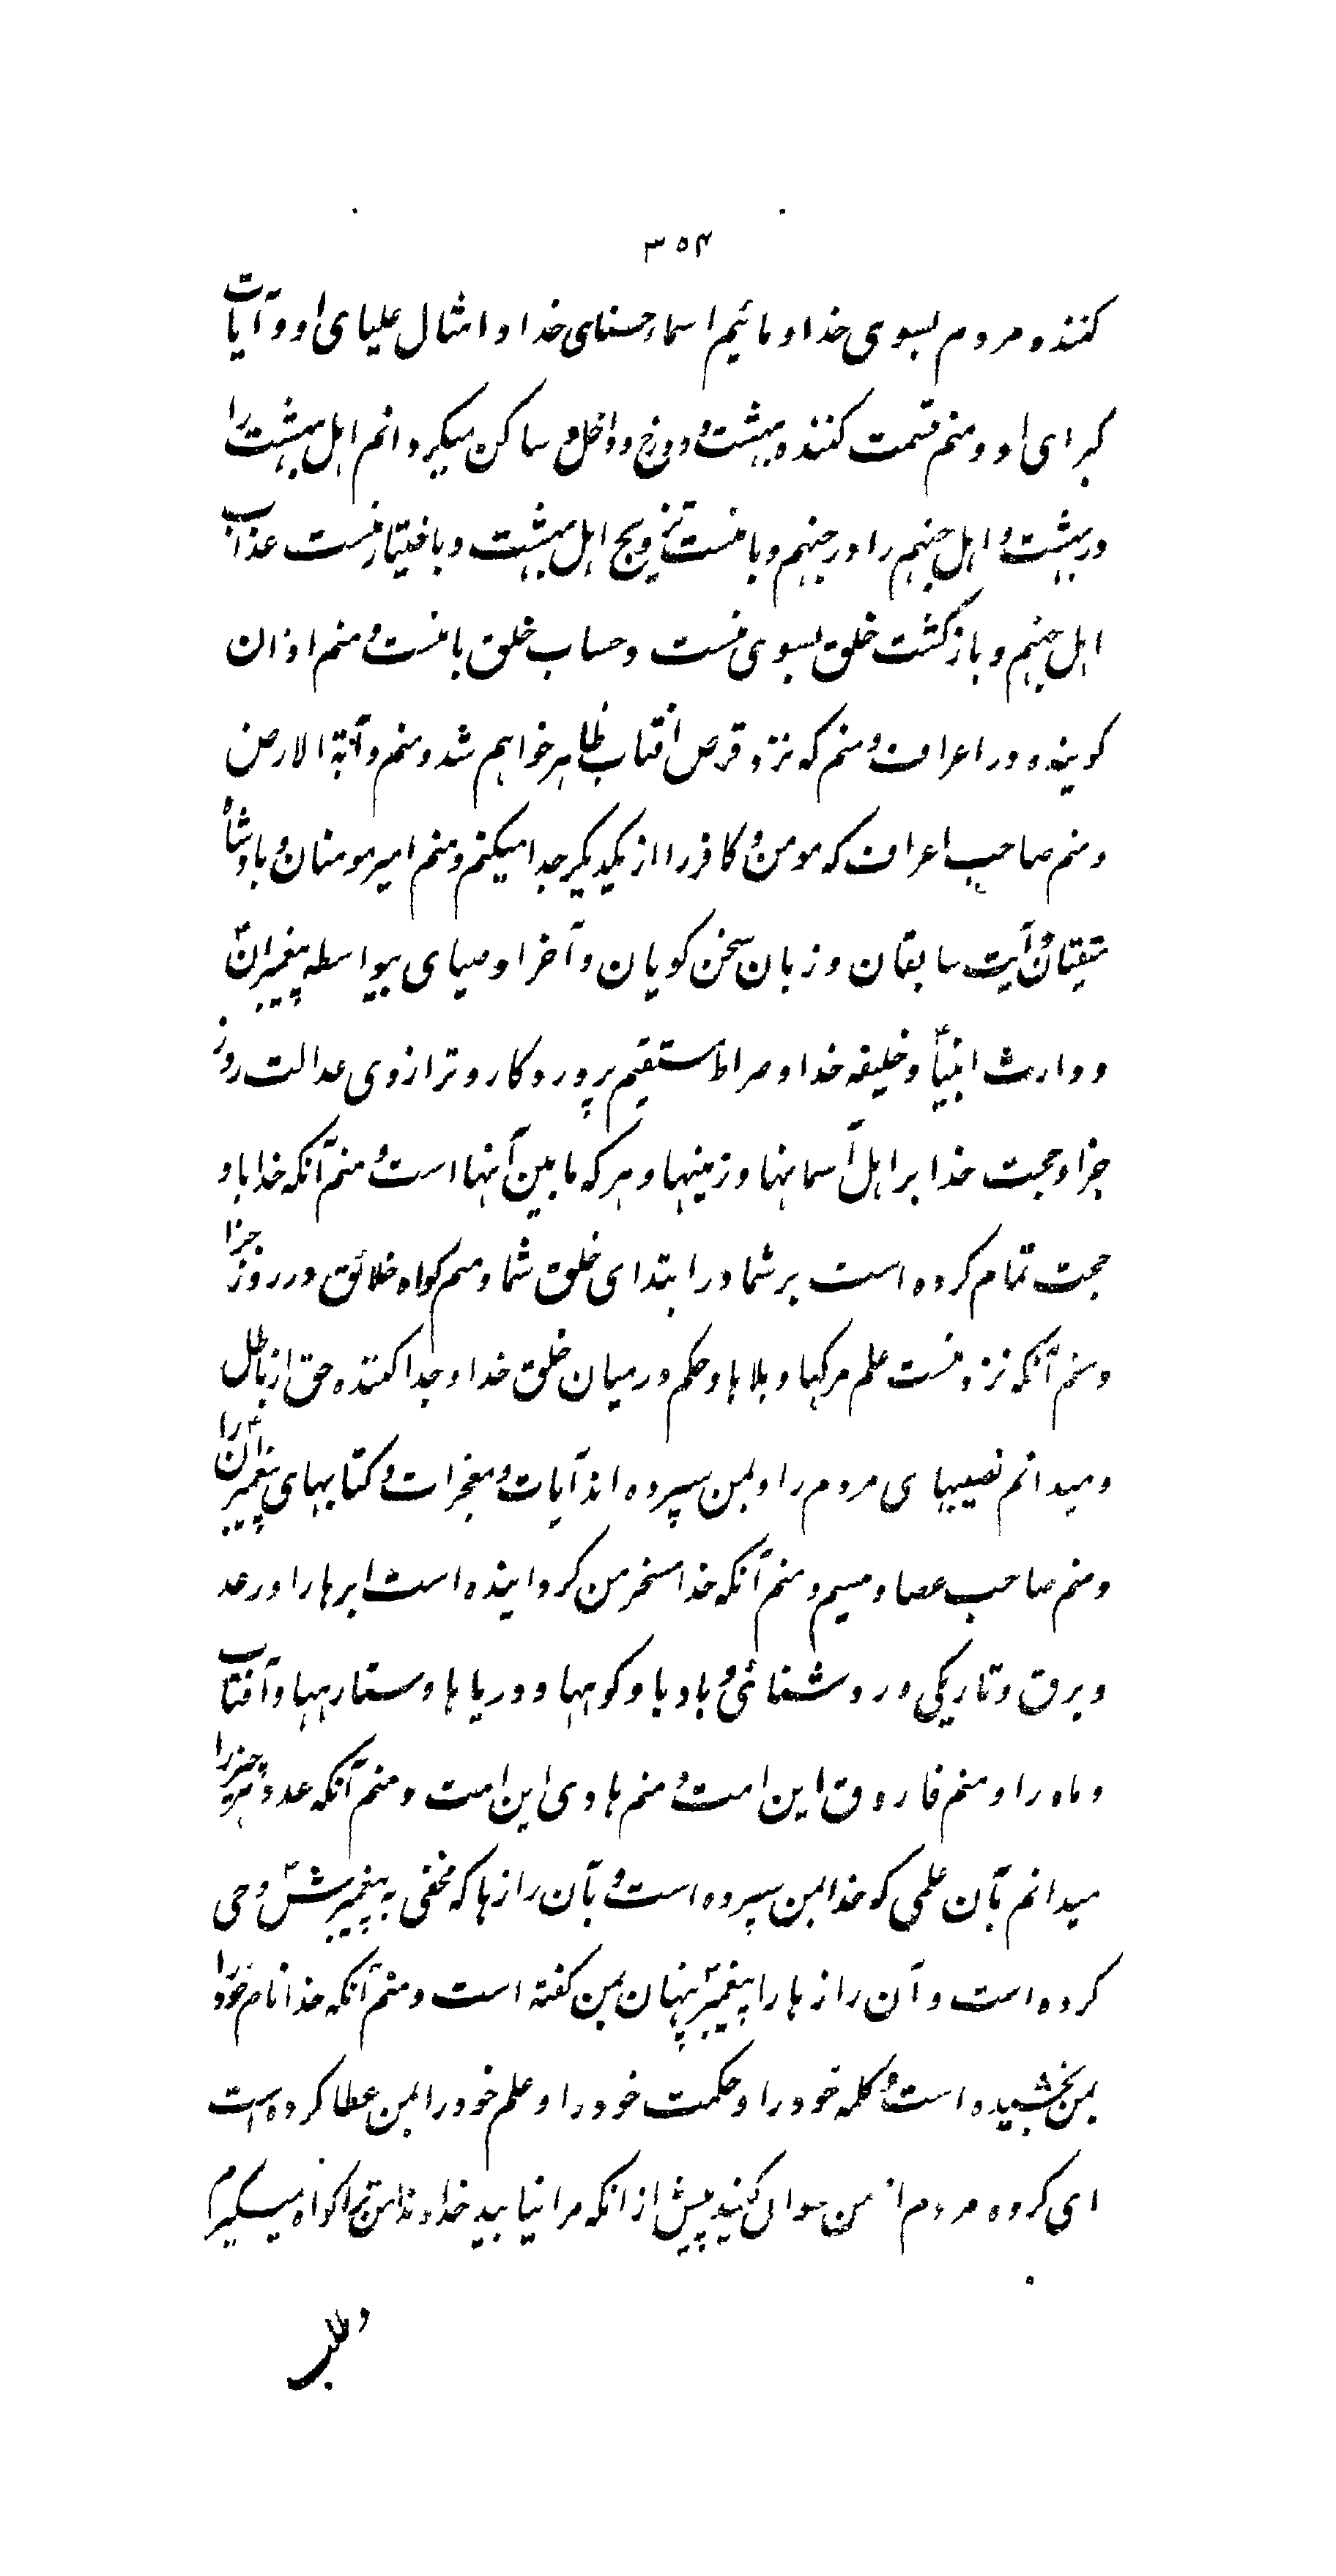 ۳۵۴
کننده مردم بسوی خدا و مائیم اسماء حسنای خدا و امثال علیای او و آیات
کبرای او و منم قسمت کننده بهشت و دوزخ و داخل و ساکن میکردانم اهل بهشت را
در بهشت و اهل جهنم را در جهنم و با منست تزویج اهل بهشت و باختیار منست عذاب
اهل جهنم و بازکشت خلق بسوی منست و حساب خلق با منست و منم اذان
کوینده در اعراف و منم که نزد قرص آفتاب ظاهر خواهم شد و منم دآبة الارض
و منم صاحب اعراف که مومن و کافر را از یکدیکر جدا میکنم و منم امیر مومنان و پادشاه
متقیان و آیت سابقان و زبان سخن کویان و آخر اوصیای بیواسطه پیغمبران
و وارث انبیآ و خلیفه خدا و صراط مستقیم پروردکار و ترازوی عدالت روز
جزا و حجت خدا بر اهل آسمانها و زمینها و هر که مابین آنها است و منم آنکه خدا باو
حجت تمام کرده است بر شما در ابتدای خلق شما و منم کواه خلائق در روز جزا
و منم آنکه نزد منست علم مرکها و بلاها و حکم در میان خلق خدا و جدا کننده حق از باطل
و میدانم نصیبهای مردم را و بمن سپرده اند آیات و معجزات و کتابهای پیغمبران را
و منم صاحب عصا و میسم و منم آنکه خدا مسخر من کردانیده است ابرها را و رعد
و برق و تاریکی و روشنائی و بادها و کوهها و دریاها و ستارهها و آفتاب
و ماه را و منم فاروق این امت و منم هادی این امت و منم آنکه عدد هر چیز را
میدانم بآن علمی که خدا بمن سپرده است و بآن رازها که مخفی به پیغمبرش وحی
کرده است و آن رازها را پیغمبر پنهان بمن کفته است و منم آنکه خدا نام خود را
بمن بخشیده است و کلمه خود را و حکمت خود را و علم خود را بمن عطا کرده است
ای کروه مردم از من سوال کنید پیش از انکه مرا نیابید خداوندا من ترا کواه میکیرم